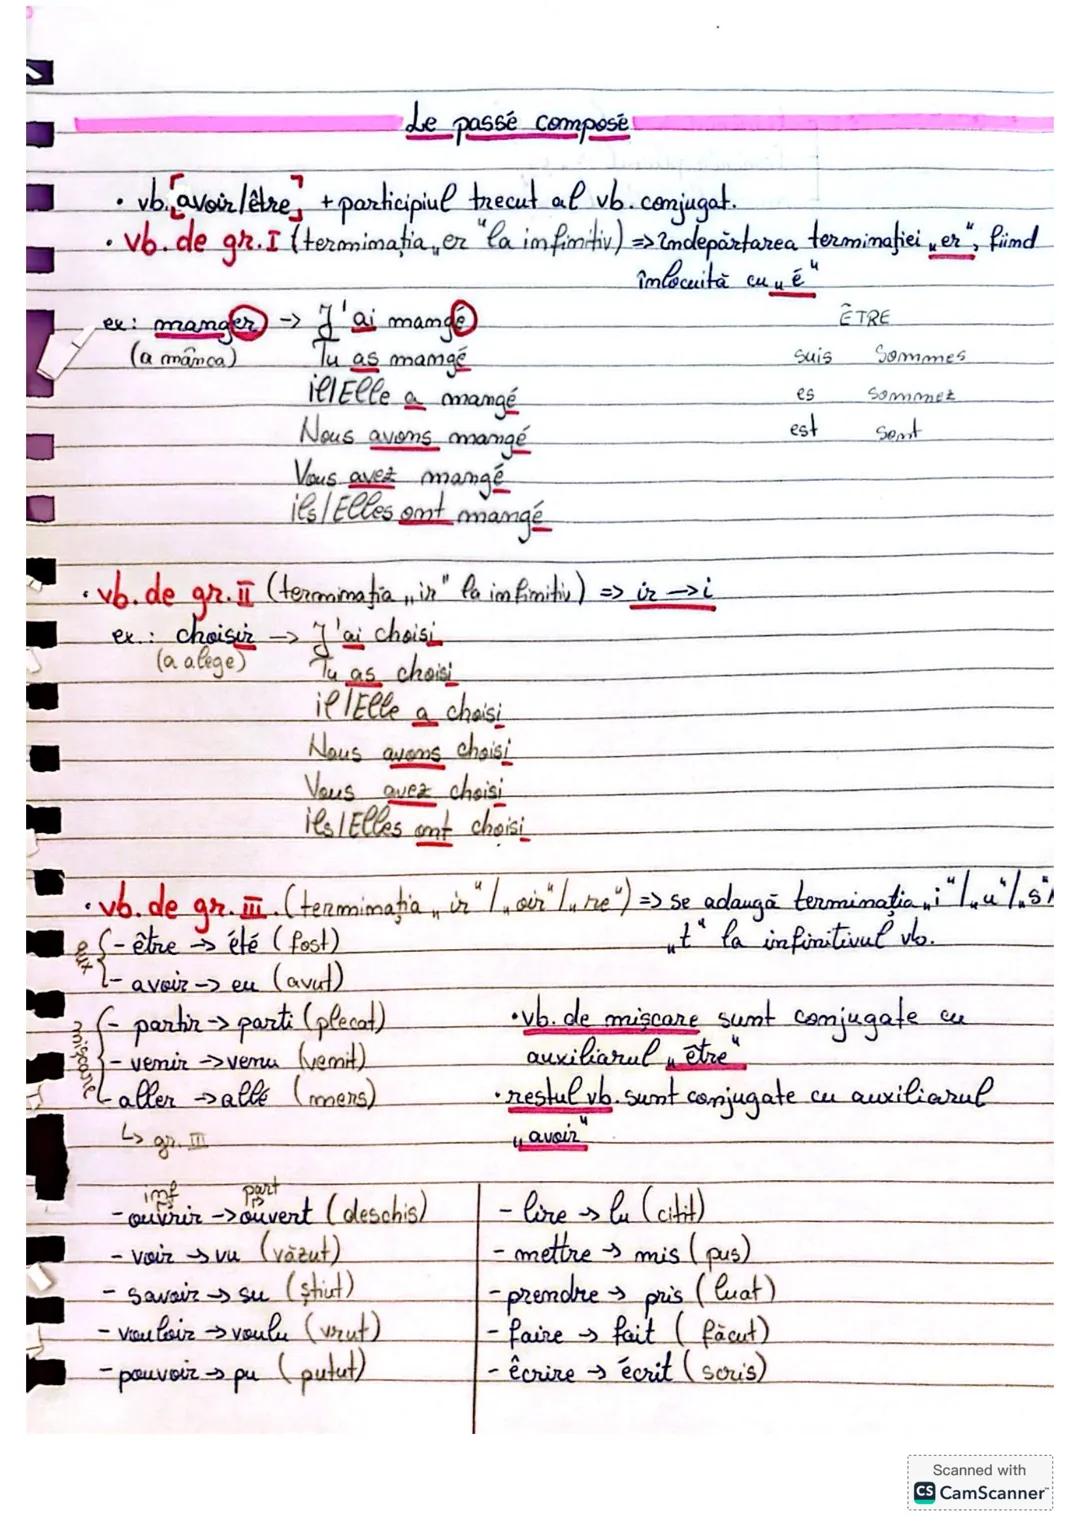 Le passé composé
• vb. [avoir/être] + participiul trecut al vb. conjugat.
• vb. de gr. I (terminația „er" la infinitiv) => îndepărtarea terminației „er", fiind
înlocuită cu „é"
ex: manger -> J'ai mangé
(a mânca) Tu as mangé
il/Elle a mangé
Nous avons mangé
Vous avez mangé
ils/Elles ont mangé
ÊTRE
suis sommes
es sommez
est sont
• vb. de gr. II (terminația „ir" la infinitiv) => ir -> i
ex.: choisir -> J'ai choisi
(a alege) Tu as choisi
il/Elle a choisi
Nous avons choisi
Vous avez choisi
ils/Elles ont choisi
• vb. de gr. III. (terminația „ir"/„oir"/„re") => se adaugă terminația „i"/„u"/„s"/
„t" la infinitivul vb.
aux
- être -> été (fost)
- avoir -> eu (avut)
mișcare
- partir -> parti (plecat)
- venir -> venu (venit)
- aller -> allé (mers)
↳ gr. III
• vb. de mișcare sunt conjugate cu
auxiliarul „être"
• restul vb. sunt conjugate cu auxiliarul
„avoir"
inf part
- ouvrir -> ouvert (deschis)
- voir -> vu (văzut)
- savoir -> su (știut)
- vouloir -> voulu (vrut)
- pouvoir -> pu (putut)
- lire -> lu (citit)
- mettre -> mis (pus)
- prendre -> pris (luat)
- faire -> fait (făcut)
- êcrire -> écrit (scris)
Scanned with
CS CamScanner